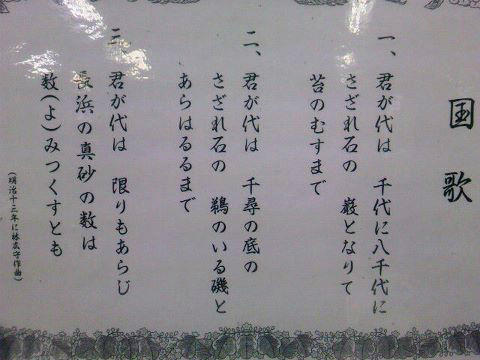 国歌
一、君が代は 千代に八千代に
さざれ石の 巌となりて
苔のむすまで
二、君が代は 千尋の底の
さざれ石の 鵜のいる磯と
あらはるるまで
三、君が代は 限りもあらじ
長浜の真砂の数は
数(よ)みつくすとも
(明治十三年に林広守作曲)